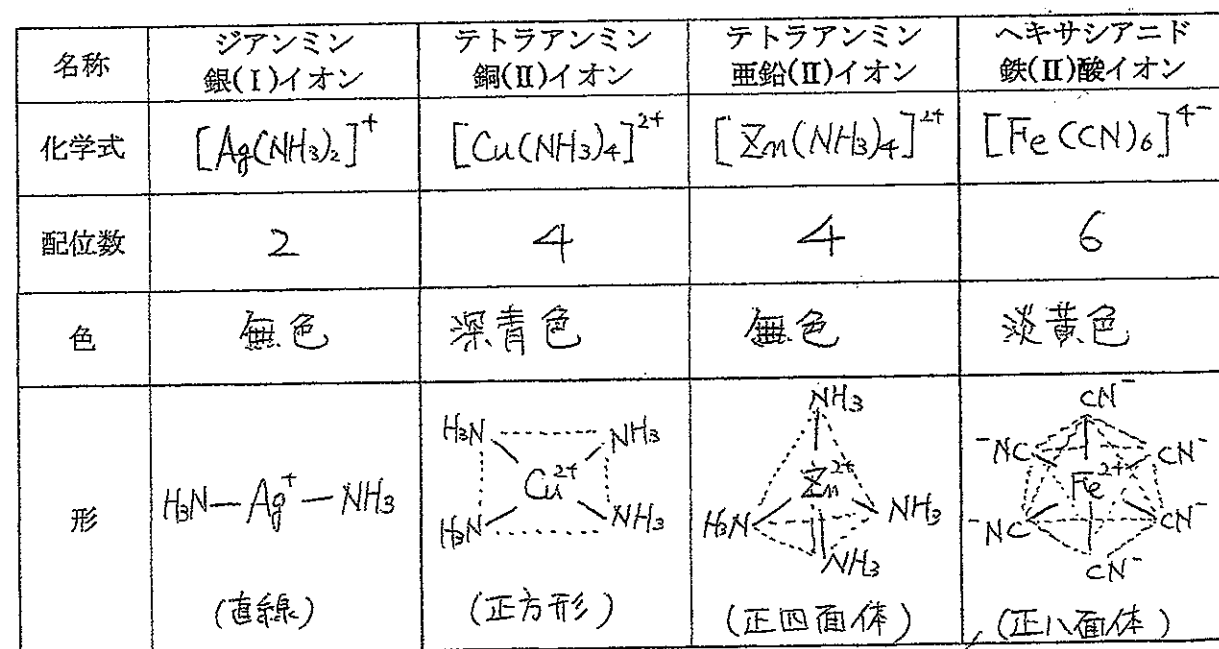 名称
ジアンミン
銀(I)イオン
テトラアンミン
銅(II)イオン
テトラアンミン
亜鉛(II)イオン
ヘキサシアニド
鉄(II)酸イオン
化学式
[Ag(NH₃)₂]⁺
[Cu(NH₃)₄]²⁺
[Zn(NH₃)₄]²⁺
[Fe(CN)₆]⁴⁻
配位数
2
4
4
6
色
無色
深青色
無色
淡黄色
形
H₃N—Ag⁺—NH₃
(直線)
H₃N
NH₃
Cu²⁺
H₃N
NH₃
(正方形)
NH₃
Zn²⁺
H₃N
NH₃
NH₃
(正四面体)
CN⁻
⁻NC
CN⁻
Fe²⁺
⁻NC
CN⁻
CN⁻
(正八面体)